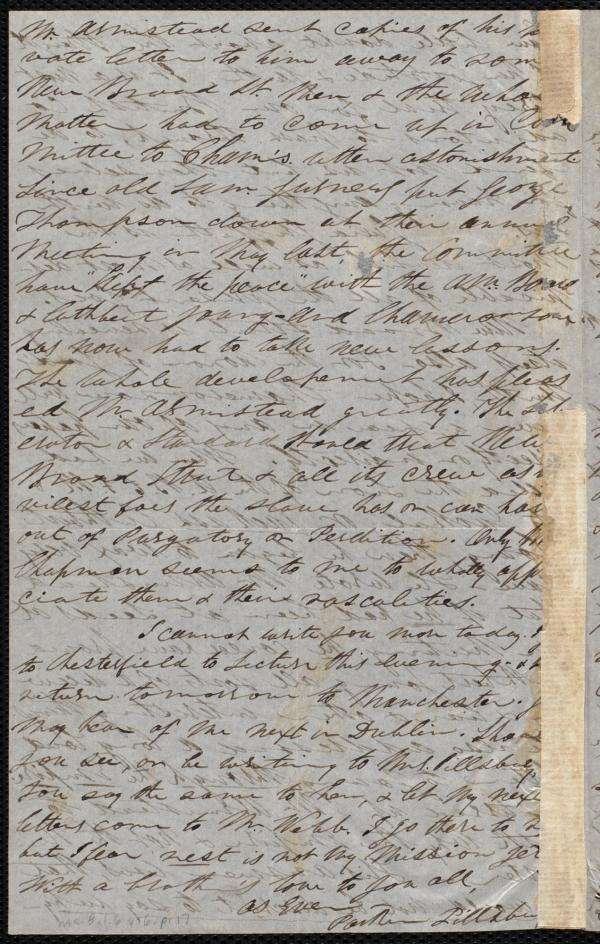 Mr. Armistead sent copies of his
vate letter to him away to som
New Broad St. men, & the whole
matter had to come up in Com
mittee to Cham's. utter astonishment
Since old Sam. put George
Thompson down at their annual
Meeting in May last, the Committee
have "kept the peace" with the Am. Board
& Cuthbert Young - and Chamerovzow
has now had to take new lessons.
The whole developement has pleas
ed Mr. Armistead greatly. The Lib
erator & Standard that New
Broad Street & all its crew as
vilest foes the slave has or can have
out of Purgatory or Perdition. Only
Chapman seems to me to wholly app
ciate them & their rascalities.
I cannot write you more today. I
to Chesterfield to Lecture this evening - &
return tomorrow to Manchester.
may hear of me next in Dublin. Should
you see, or be writing to Mrs. Pillsbury,
you say the same to her, & let my next
letters come to Mr. Webb. I go there to
but I fear rest is not my Mission yet
With a brother's love to you all,
as Ever
Parker Pillsbu
Ms. B.1.6 v.6, p. 17